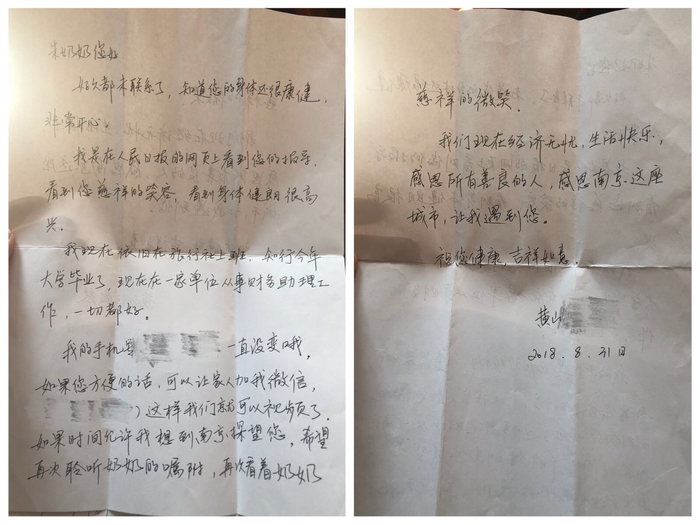 朱奶奶您好
好久都未联系了，知道您的身体还很康健，
非常开心。
我是在人民日报的网页上看到您的报导，
看到您慈祥的笑容，看到身体健朗很高
兴。
我现在依旧在旅行社上班，知行今年
大学毕业了，现在在一家单位从事财务助理工
作，一切都好。
我的手机号 一直没变哦，
如果您方便的话，可以让家人加我微信，
）这样我们就可以视频了。
如果时间允许我想到南京探望您，希望
再次聆听奶奶的嘱咐，再次看着奶奶
慈祥的微笑.
我们现在经济无忧，生活快乐，
感恩所有善良的人，感恩南京这座
城市，让我遇到您。
祝您健康，吉祥如意.
黄山
2018.8.31日